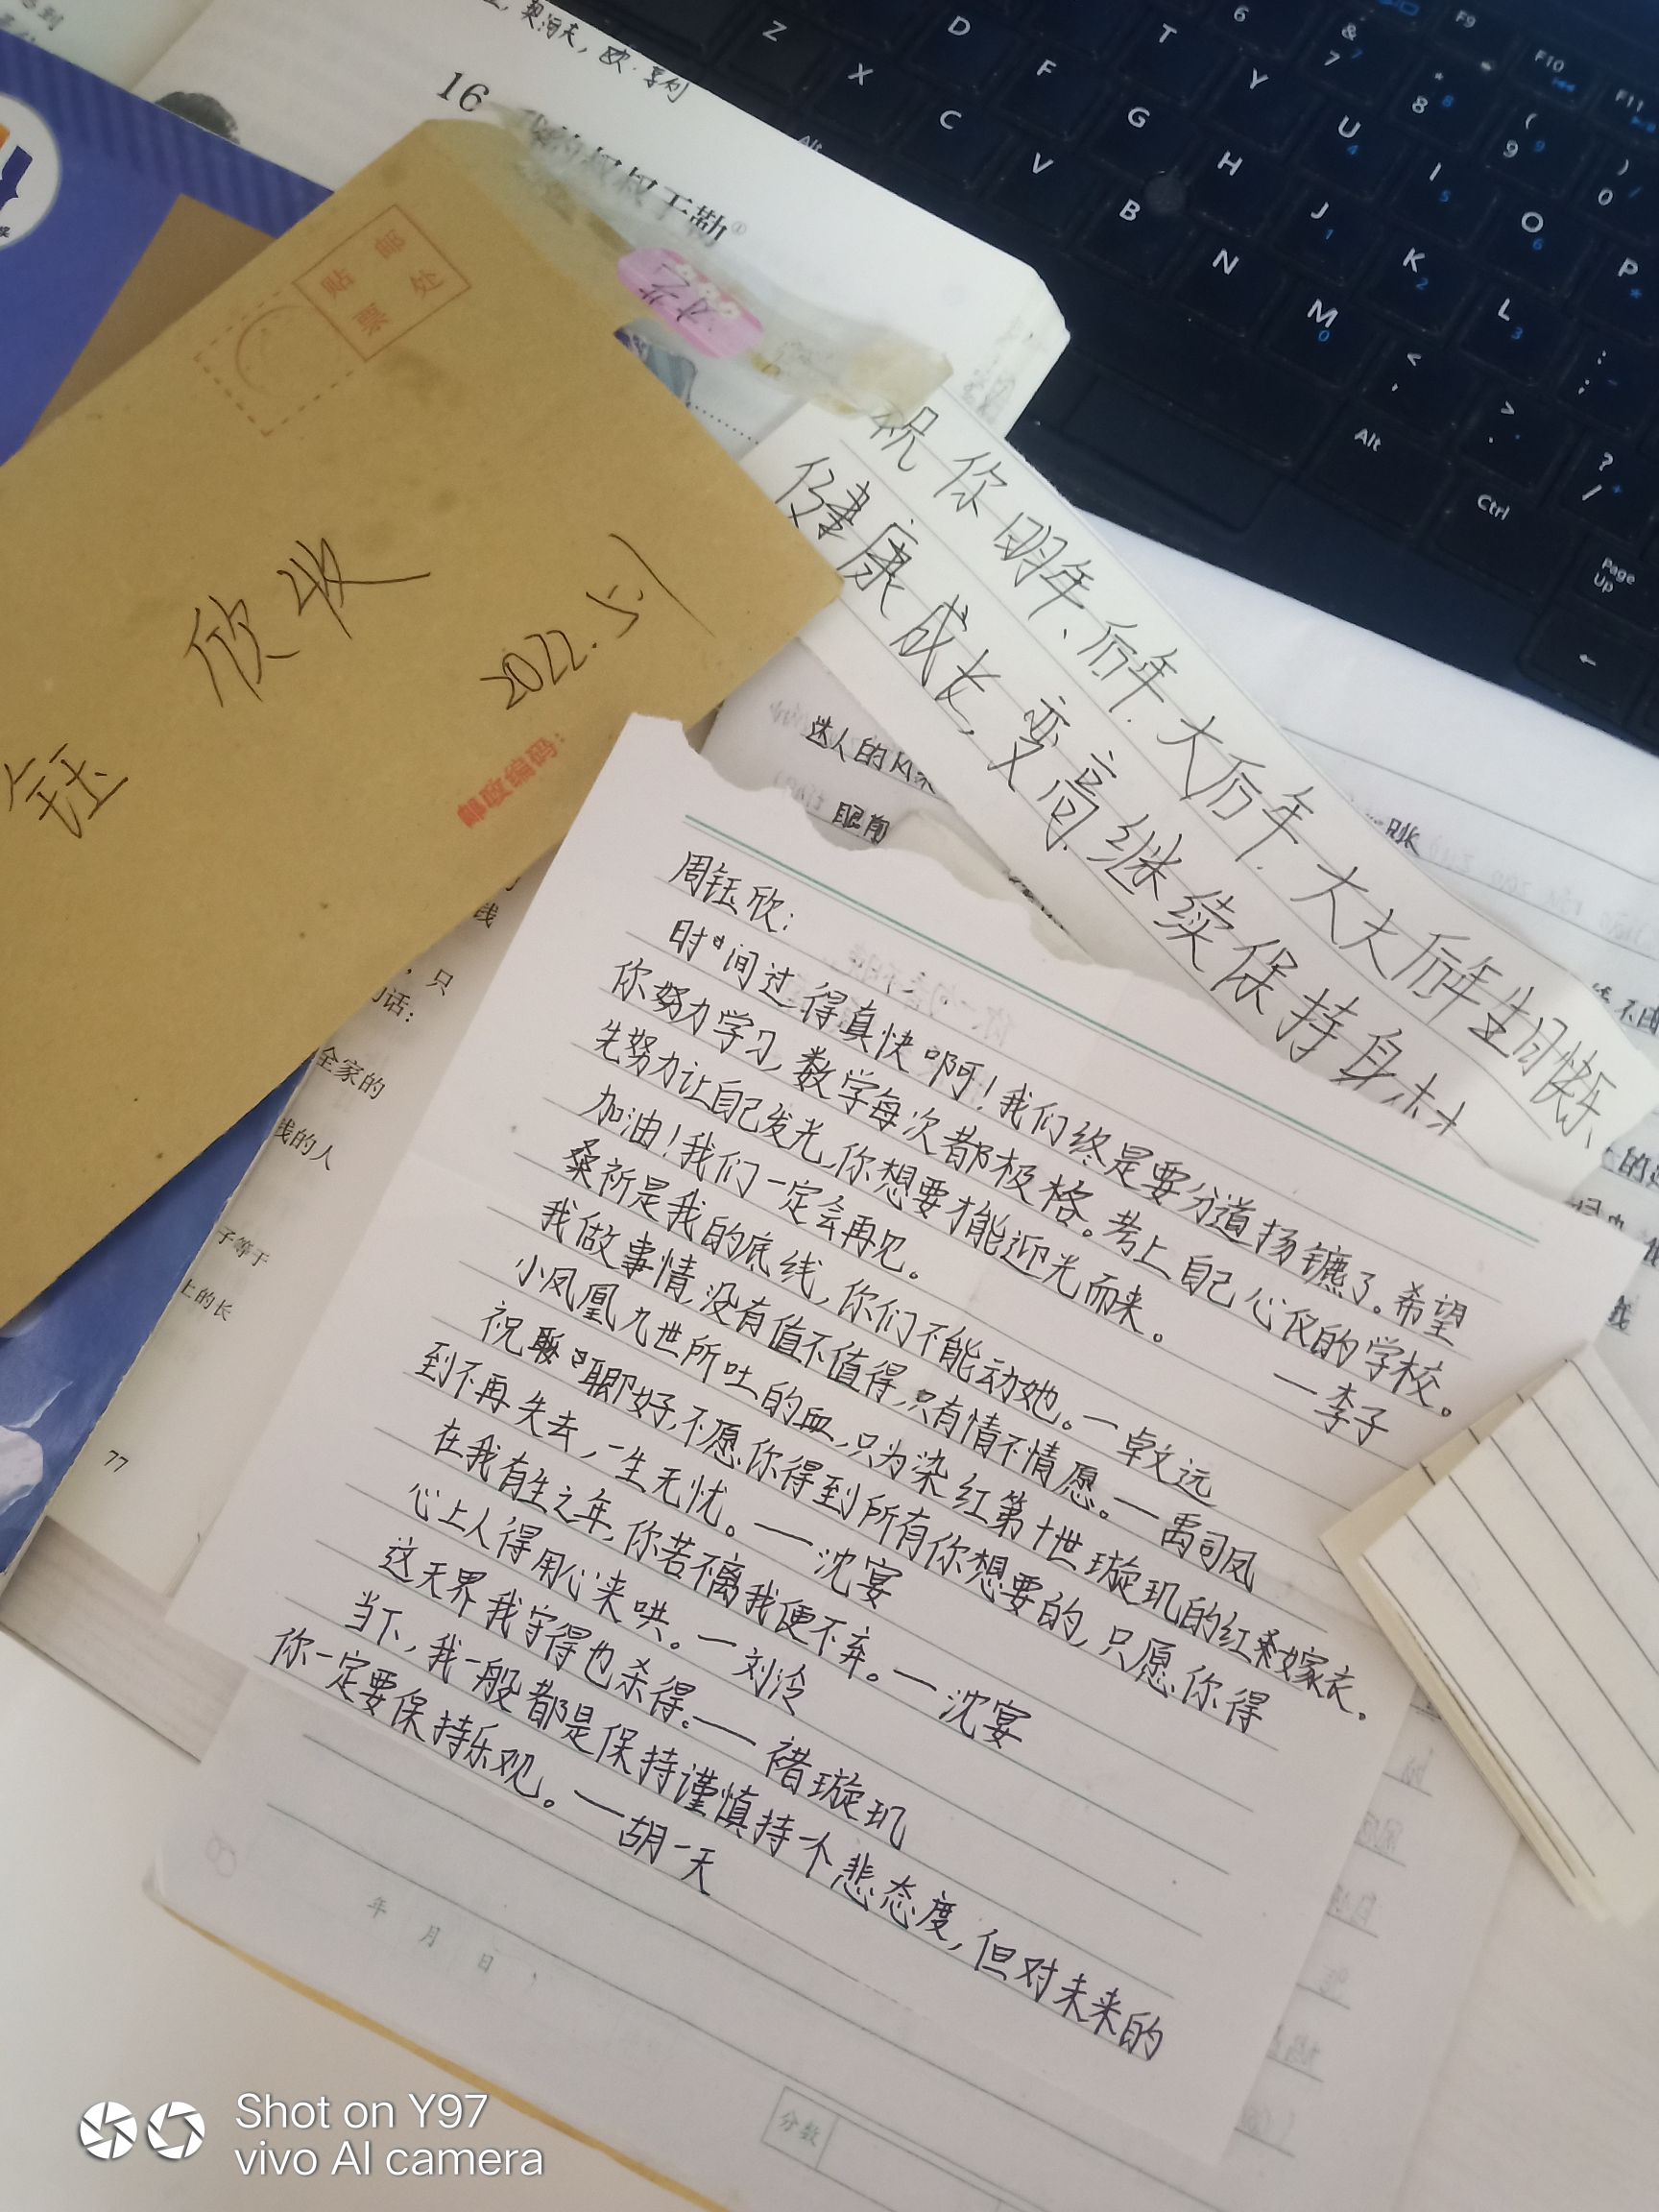 16
我的叔叔于勒①
贴
邮
票
处
钰
欣收
2022.5.1
邮政编码：
祝你明年、后年、大后年、大大后年生日快乐
健康成长，变高，继续保持身材
达人的风
眼前
周钰欣：
时间过得真快啊！我们终是要分道扬镳了。希望
你努力学习，数学每次都极格。考上自己心仪的学校。
先努力让自己发光，你想要才能迎光而来。 一李子
加油！我们一定会再见。
桑祈是我的底线，你们不能动她。一卓文远
我做事情，没有值不值得，只有情不情愿。一禹司凤
小凤凰九世所吐的血，只为染红第十世璇玑的红嫁衣。
祝聊聊好，不愿你得到所有你想要的，只愿你得
到不再失去，一生无忧。——沈宴
在我有生之年，你若不离我便不弃。一沈宴
心上人得用心来哄。一刘泠
这天界我守得也杀得。——褚璇玑
当下，我一般都是保持谨慎持个悲态度，但对未来的
你一定要保持乐观。——胡一天
年 月 日
分数
，只
的话：
全家的
钱的人
子等于
上的长
77
Z X C V B N M
D F G H J K L
T Y U I O P
6 7 8 9 0
F9 F10 F11
Alt
Alt
Ctrl
Page Up
Shot on Y97
vivo AI camera